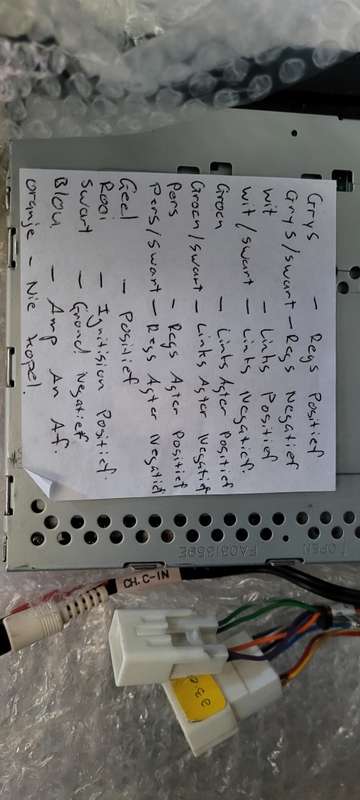 Grys - Regs Positief
Grys/swart - Regs Negatief
wit - Links Positief
wit/swart - Links Negatief.
Groen - Links Agter Positief
Groen/swart - Links Agter Negatief
Pers - Regs Agter Positief
Pers/swart - Regs Agter Negatief
Geel - Positief
Rooi - Ignitision Positief.
Swart - Grond Negatief
Blou - Amp An Af.
oranje - Nie kopel!
OPEN
CH. C-IN